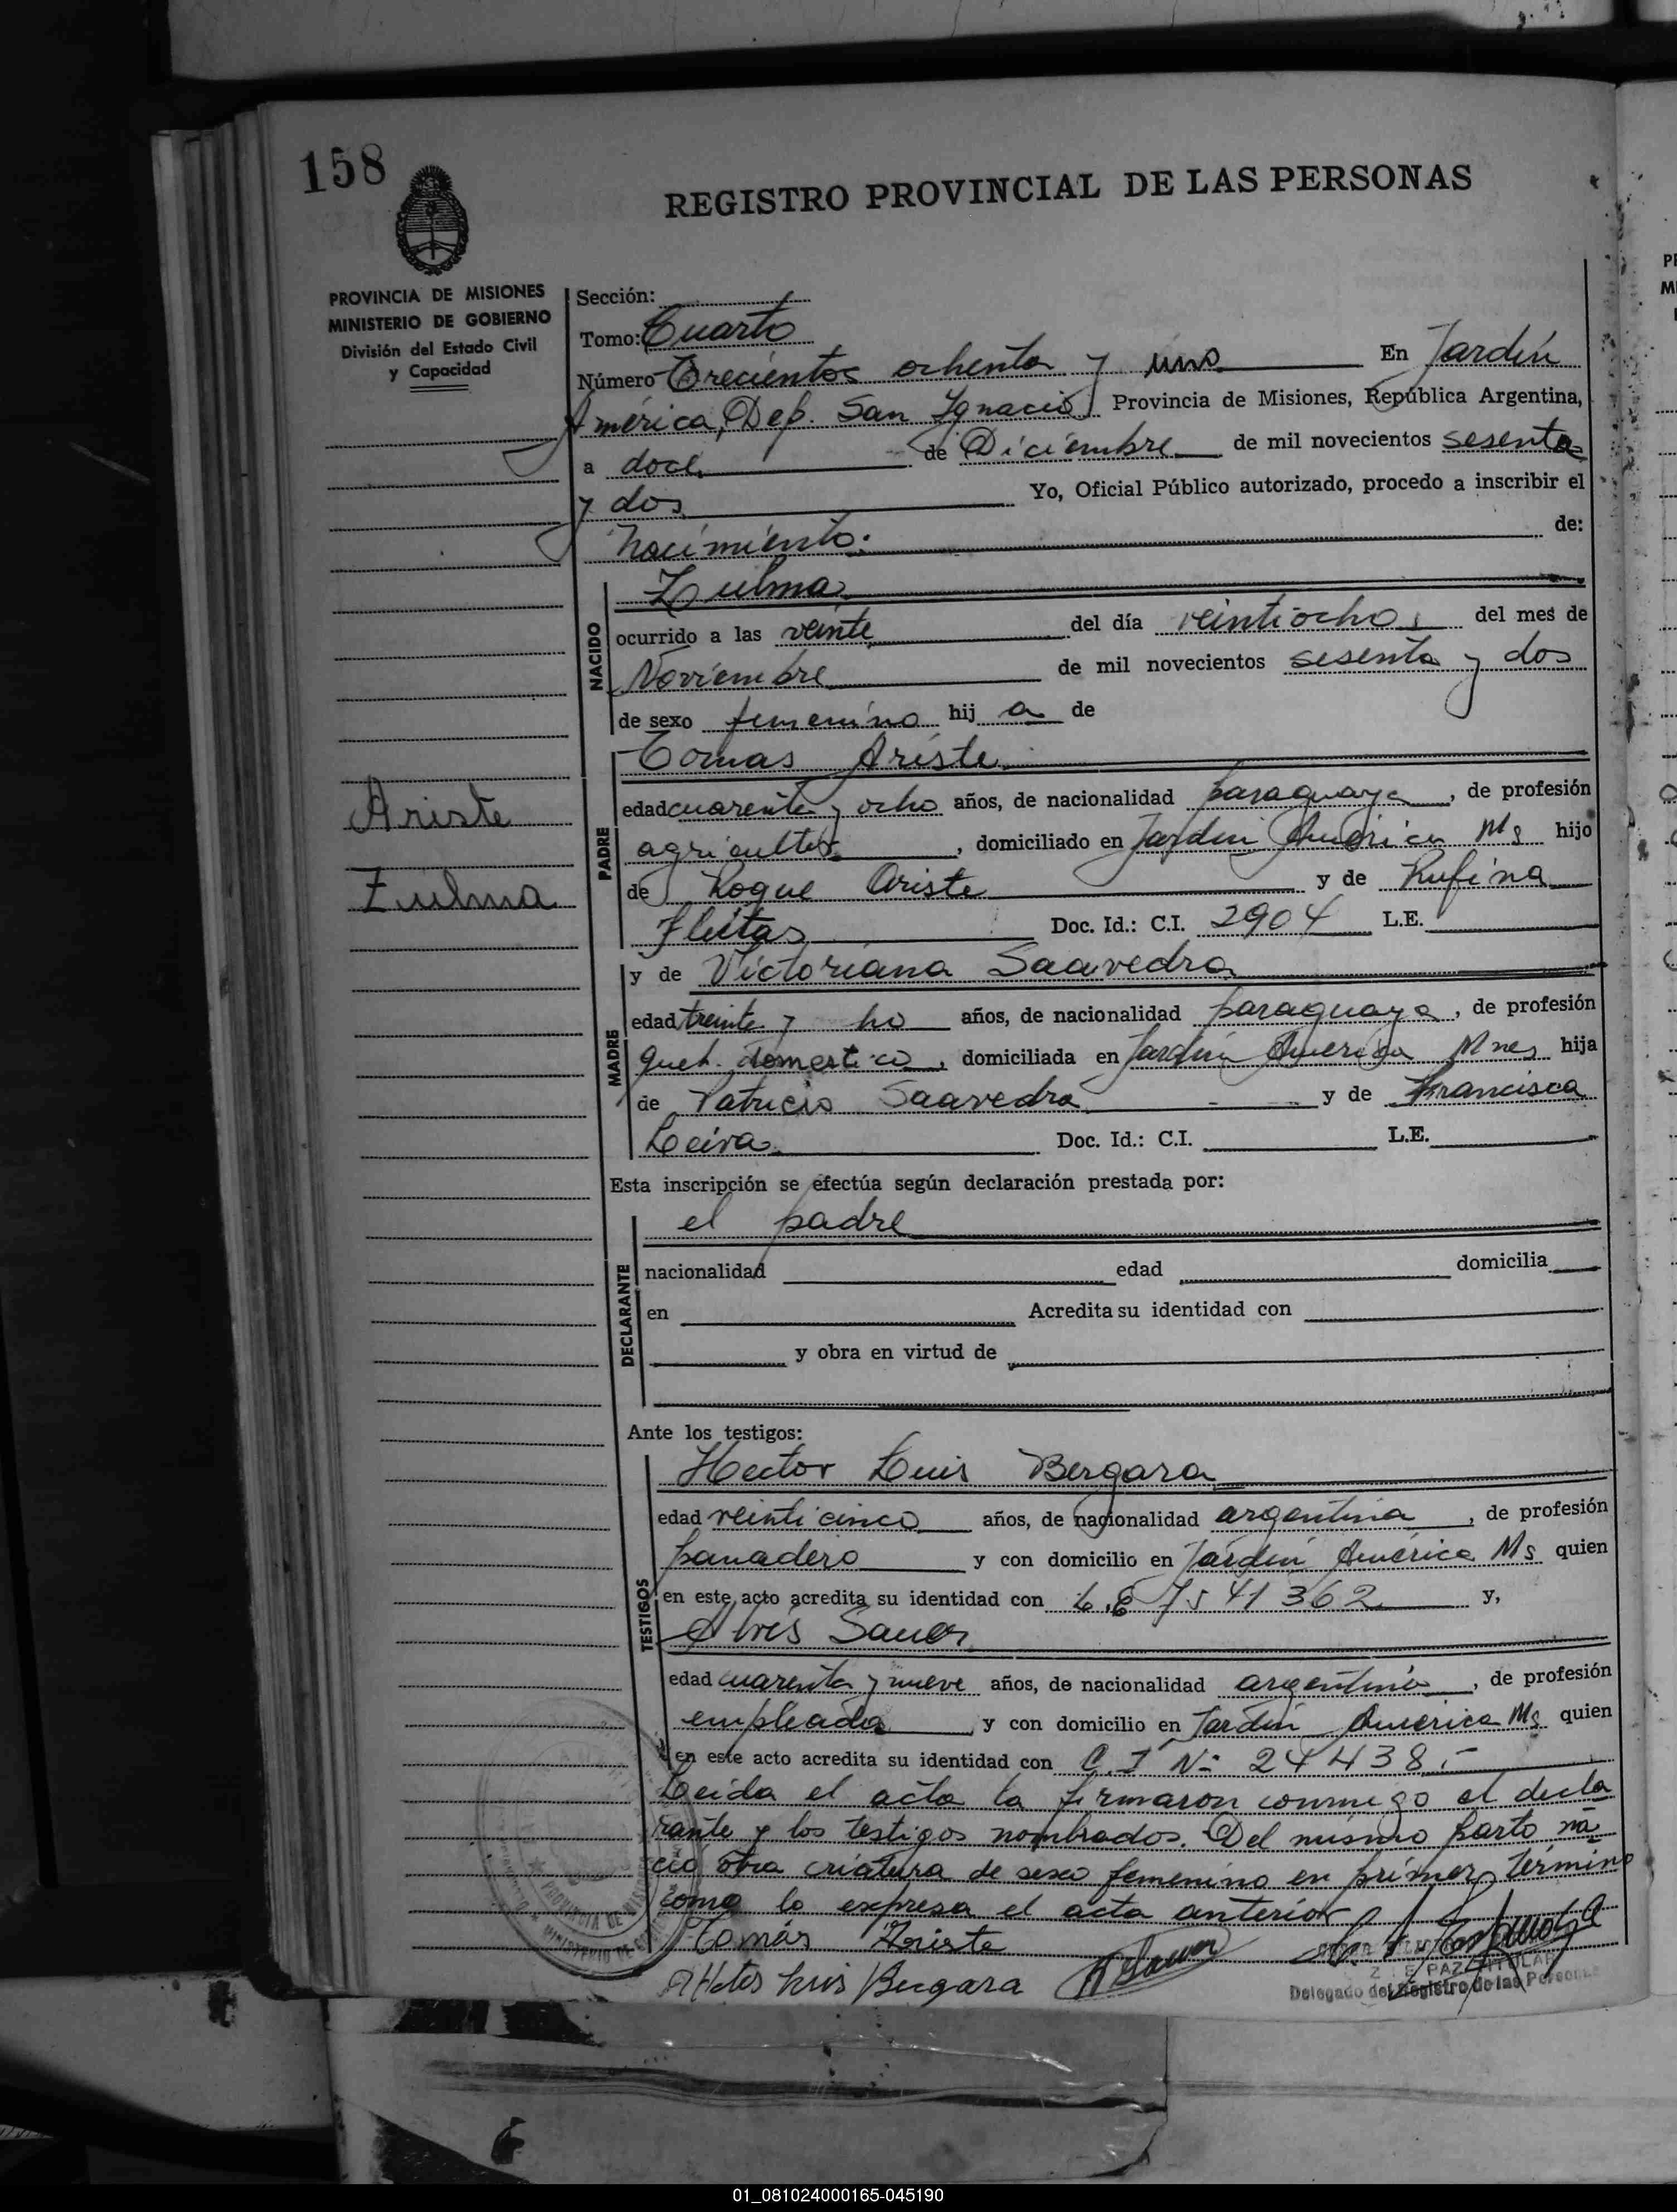 158
REGISTRO PROVINCIAL DE LAS PERSONAS
PROVINCIA DE MISIONES
MINISTERIO DE GOBIERNO
División del Estado Civil
y Capacidad
Sección:
Tomo: Cuarto
Número Trecientos ochenta y uno En Jardín
América, Dep. San Ignacio Provincia de Misiones, República Argentina,
a doce de Diciembre de mil novecientos sesenta
y dos Yo, Oficial Público autorizado, procedo a inscribir el
nacimiento. de:
NACIDO
Zulma
ocurrido a las veinte del día veintiocho del mes de
Noviembre de mil novecientos sesenta y dos
de sexo femenino hij a de
Ariste
Zulma
PADRE
Tomas Ariste
edad cuarenta y ocho años, de nacionalidad paraguaya, de profesión
agricultor, domiciliado en Jardin América Ms hijo
de Roque Ariste y de Rufina
Fleitas Doc. Id.: C.I. 2904 L.E.
MADRE
y de Victoriana Saavedra
edad treinta y ho años, de nacionalidad paraguaya, de profesión
queh. domestico, domiciliada en Jardin America Mnes hija
de Patricio Saavedra y de Francisca
Leiva Doc. Id.: C.I. L.E.
Esta inscripción se efectúa según declaración prestada por:
DECLARANTE
el padre
nacionalidad edad domicilia
en Acredita su identidad con
y obra en virtud de
Ante los testigos:
TESTIGOS
Hector Luis Bergara
edad veinticinco años, de nacionalidad argentina, de profesión
panadero y con domicilio en Jardin América Ms quien
en este acto acredita su identidad con L.E 7541362 y,
Sauer
edad cuarenta y nueve años, de nacionalidad argentino, de profesión
empleado y con domicilio en Jardin América Ms quien
en este acto acredita su identidad con C.I Nº 24438.-
Leida el acta la firmaron conmigo el decla
rante y los testigos nombrados. Del mismo parto na
ció otra criatura de sexo femenino en primer término
como lo expresa el acta anterior
Tomás Ariste
Luis Bergara
Delegado del Registro de las Personas
PROVINCIA DE MISIONES
MINISTERIO DE
01_081024000165-045190